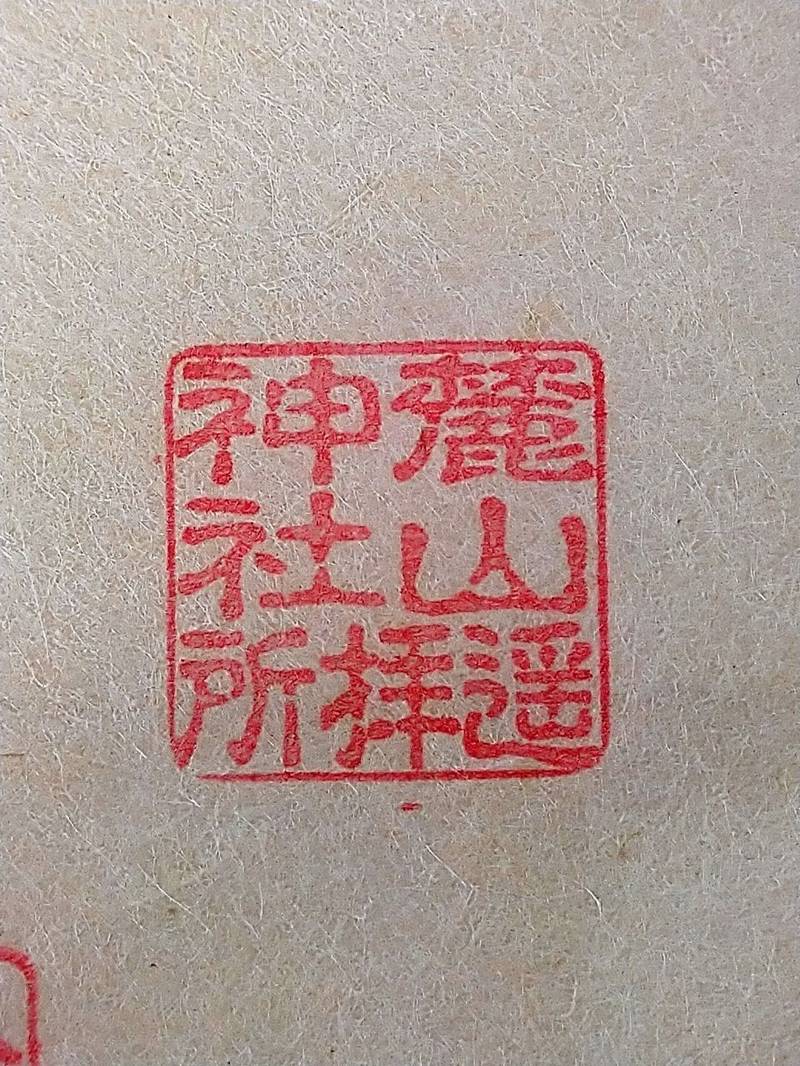 麓山
神社
遥拝所